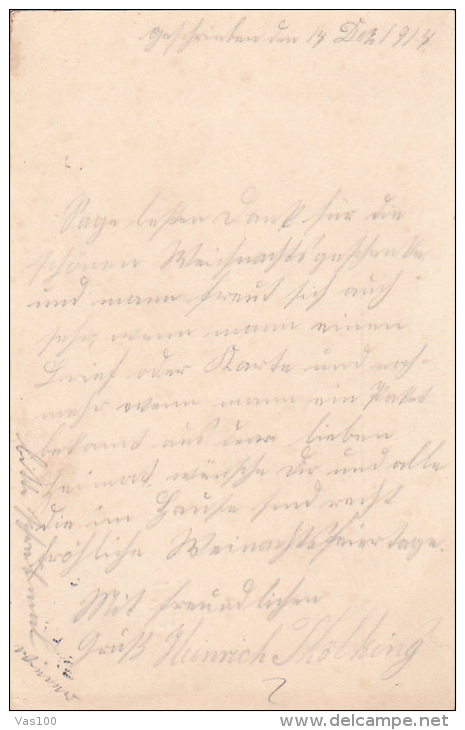 geschrieben den 14 Dez 1917.
Sage besten Dank für die
schönen Weichnachtsgeschenke.
und mann freut sich auch
sehr, wenn mann einen
Brief oder Karte und noch-
mehr wenn mann ein Paket
bekamt aus der lieben
Heimat, wünsche Dir und alle
die im Hause sind recht
fröhliche Weinachtsfeiertage.
Mit freundlichen
Gruß Heinrich
Bitte
Vas100
www.delcampe.net